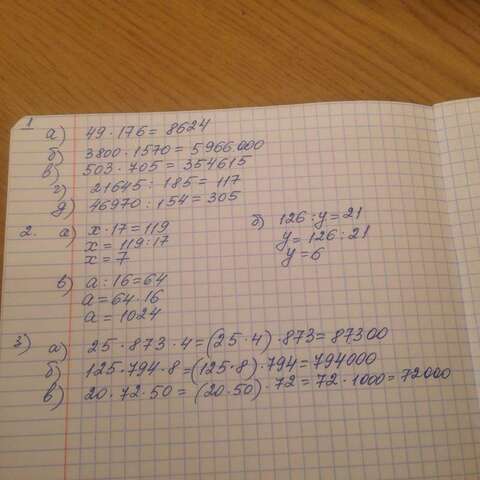 1
а) 49·176=8624
б) 3800·1570=5966000
в) 503·705=354615
г) 21645:185=117
д) 46970:154=305
2. а) x·17=119
x=119:17
x=7
б) 126:y=21
y=126:21
y=6
в) a:16=64
a=64·16
a=1024
3) а) 25·873·4=(25·4)·873=87300
б) 125·794·8=(125·8)·794=794000
в) 20·72·50=(20·50)·72=72·1000=72000